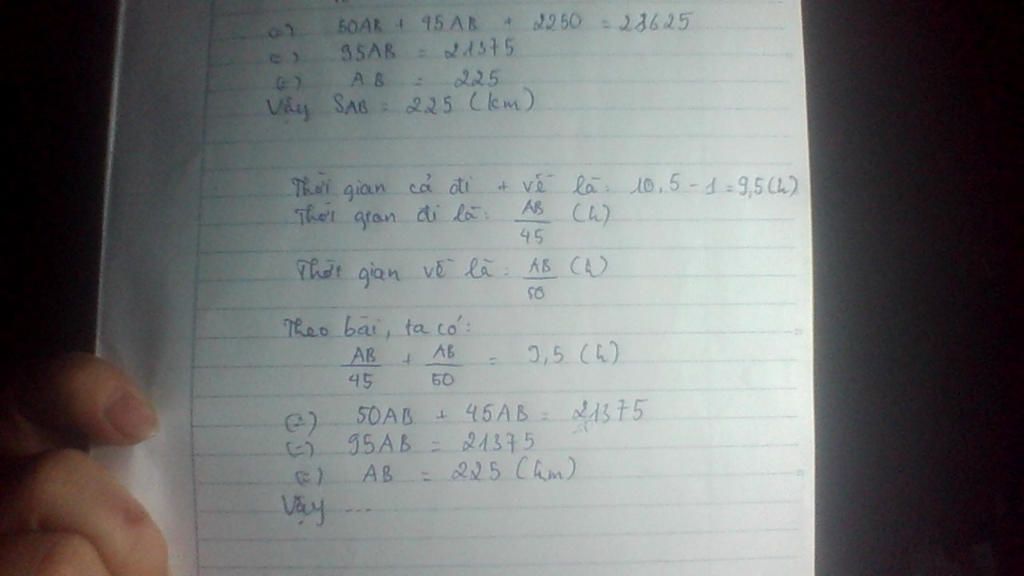 (=) 50AB + 45AB + 2250 = 23625
(=) 95AB = 21375
(=) AB = 225
Vậy SAB = 225 (km)
Thời gian cả đi + về là: 10,5 - 1 = 9,5 (h)
Thời gian đi là: AB/45 (h)
Thời gian về là: AB/50 (h)
Theo bài, ta có:
AB/45 + AB/50 = 9,5 (h)
(=) 50AB + 45AB = 21375
(=) 95AB = 21375
(=) AB = 225 (km)
Vậy ...